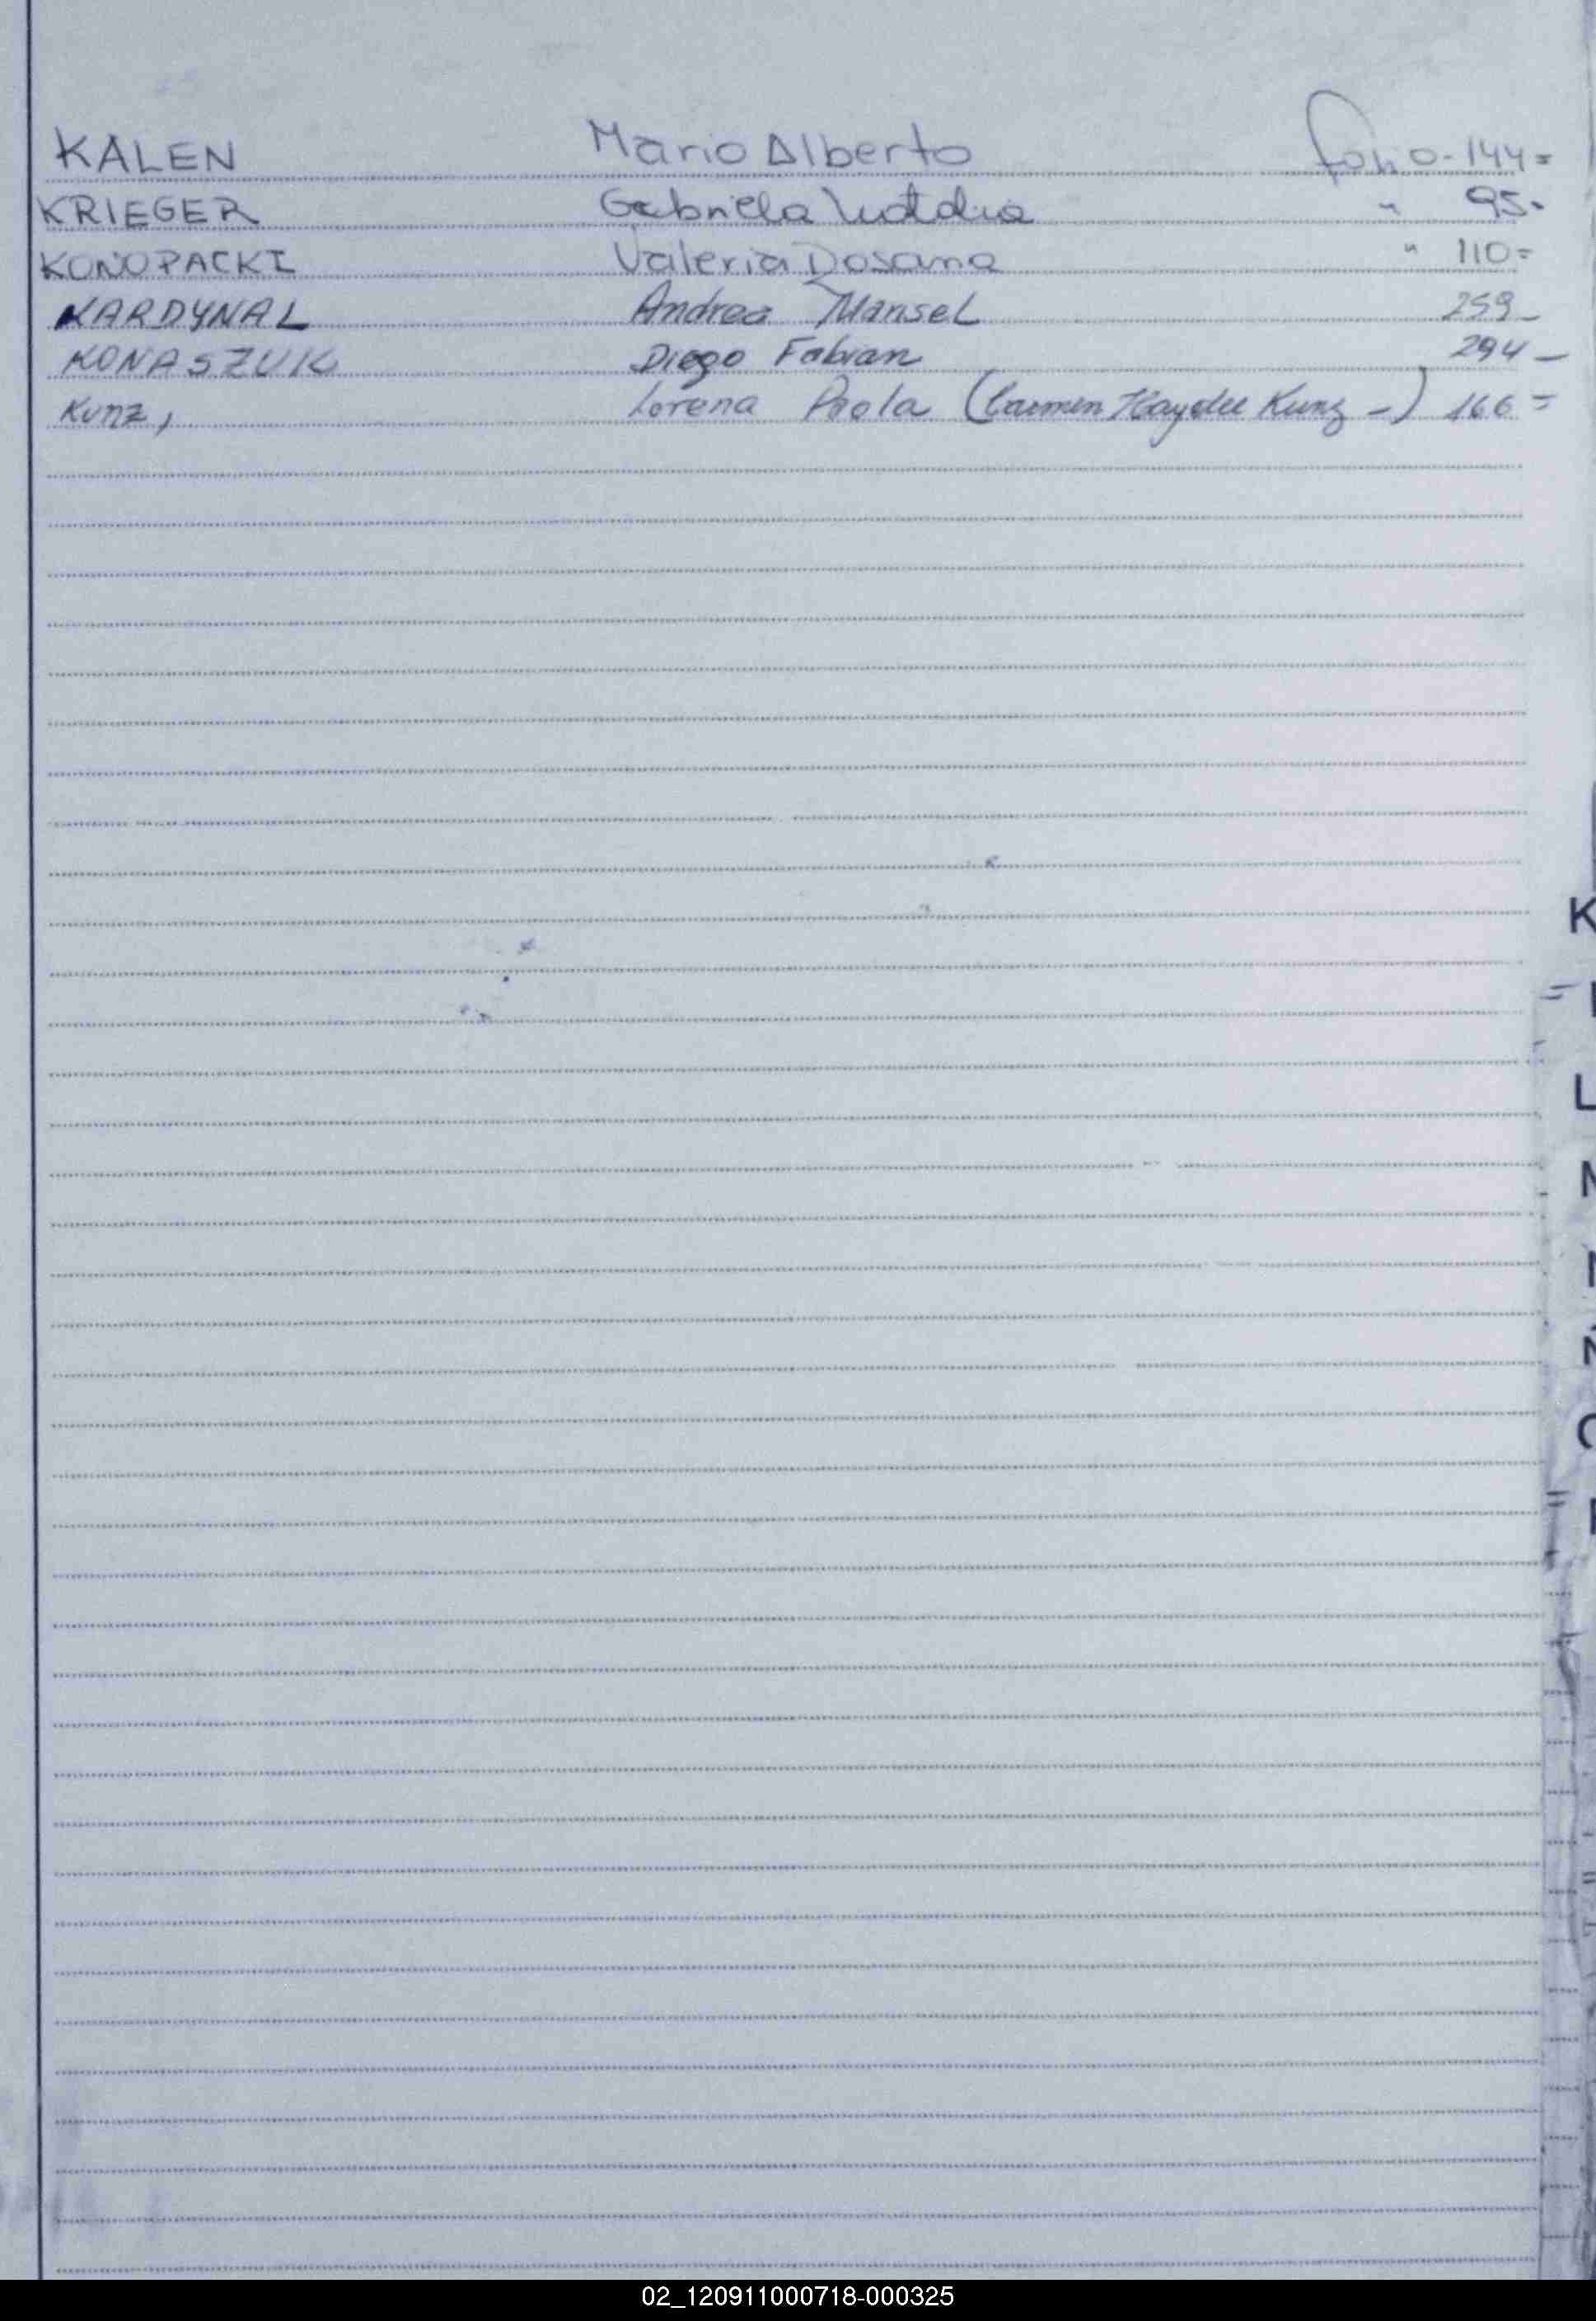 KALEN Mario Alberto folio - 144 =
KRIEGER Gabriela " 95 -
KONOPACKI Valeria " 110 =
KARDYNAL Andrea Marisel 259 -
KONASZUK Diego Fabian 294 -
Kunz, Lorena Paola (Carmen Haydee Kunz -) 166 =
K
L
02_120911000718-000325